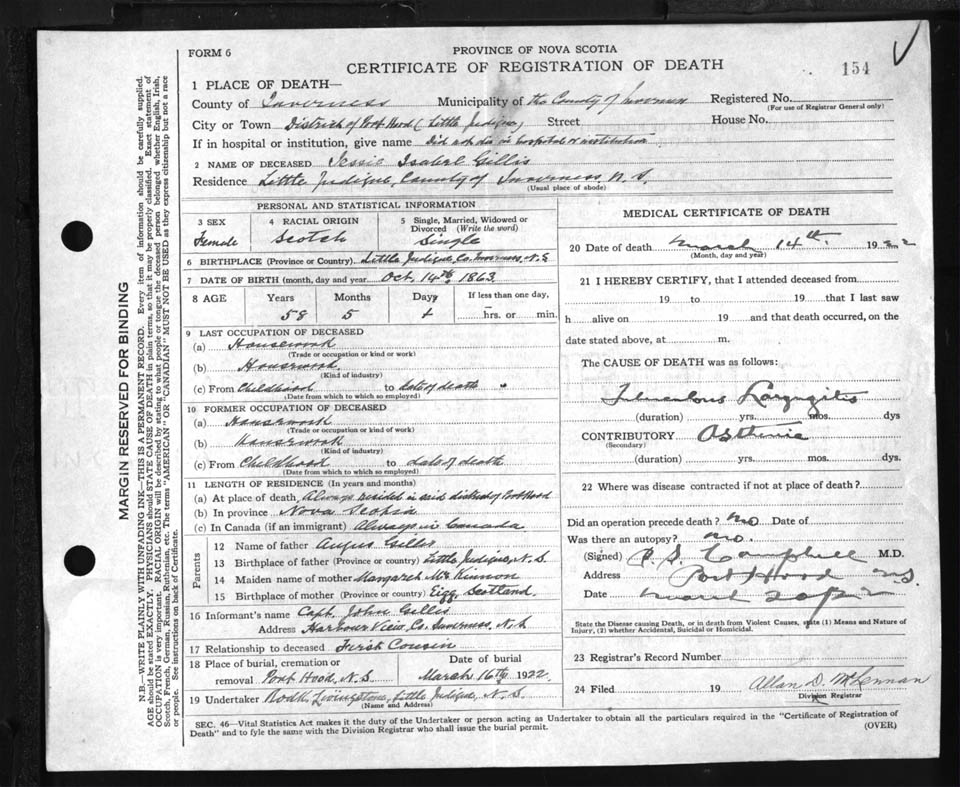 FORM 6
PROVINCE OF NOVA SCOTIA
CERTIFICATE OF REGISTRATION OF DEATH
154
1 PLACE OF DEATH—
County of Inverness Municipality of the County of Inverness Registered No.
(For use of Registrar General only)
City or Town District of Port Hood (Little Judique) Street House No.
If in hospital or institution, give name Did not die in hospital or institution
2 NAME OF DECEASED Jessie Isabel Gillis
Residence Little Judique, County of Inverness, N. S.
(Usual place of abode)
PERSONAL AND STATISTICAL INFORMATION
3 SEX 4 RACIAL ORIGIN 5 Single, Married, Widowed or Divorced (Write the word)
Female Scotch Single
6 BIRTHPLACE (Province or Country) Little Judique, Co. Inverness, N.S
7 DATE OF BIRTH (month, day and year) Oct. 14th, 1863
8 AGE Years Months Days If less than one day,
58 5 hrs. or min.
9 LAST OCCUPATION OF DECEASED
(a) Housework
(Trade or occupation or kind or work)
(b) Housework
(Kind of industry)
(c) From Childhood to date of death
(Date from which to which so employed)
10 FORMER OCCUPATION OF DECEASED
(a) Housework
(Trade or occupation or kind of work)
(b) Housework
(Kind of industry)
(c) From Childhood to date of death
(Date from which to which so employed)
11 LENGTH OF RESIDENCE (In years and months)
(a) At place of death, Always resided in said district of Port Hood
(b) In province Nova Scotia
(c) In Canada (if an immigrant) Always in Canada
Parents
12 Name of father Angus Gillis
13 Birthplace of father (Province or country) Little Judique, N. S.
14 Maiden name of mother Margaret McKinnon
15 Birthplace of mother (Province or country) Eigg, Scotland.
16 Informant's name Capt. John Gillis
Address Harbour View, Co. Inverness, N.S
17 Relationship to deceased First Cousin
18 Place of burial, cremation or removal Port Hood, N.S. Date of burial March 16th, 1922
19 Undertaker Rodk. Livingstone, Little Judique, N. S.
(Name and Address)
MEDICAL CERTIFICATE OF DEATH
20 Date of death March 14th 1922
(Month, day and year)
21 I HEREBY CERTIFY, that I attended deceased from
19 to 19 that I last saw
h alive on 19 and that death occurred, on the
date stated above, at m.
The CAUSE OF DEATH was as follows:
Tuberculous Laryngitis
(duration) yrs. mos. dys
CONTRIBUTORY Asthenia
(Secondary)
(duration) yrs. mos. dys.
22 Where was disease contracted if not at place of death?
Did an operation precede death? no Date of
Was there an autopsy? no.
(Signed) Campbell M.D.
Address Port Hood NS.
Date
State the Disease causing Death, or in death from Violent Causes, state (1) Means and Nature of
Injury, (2) whether Accidental, Suicidal or Homicidal.
23 Registrar's Record Number
24 Filed 19 Allan D. McLennan
Division Registrar
SEC. 46—Vital Statistics Act makes it the duty of the Undertaker or person acting as Undertaker to obtain all the particulars required in the "Certificate of Registration of
Death" and to fyle the same with the Division Registrar who shall issue the burial permit.
(OVER)
MARGIN RESERVED FOR BINDING
N.B.—WRITE PLAINLY WITH UNFADING INK—THIS IS A PERMANENT RECORD. Every item of information should be carefully supplied.
AGE should be stated EXACTLY. PHYSICIANS should STATE CAUSE OF DEATH in plain terms, so that it may be properly classified. Exact statement of
OCCUPATION is very important. RACIAL ORIGIN will be described by stating to what people or tongue the deceased person belonged, whether English, Irish,
Scotch, French, German, Russian, Ruthenian, etc. The terms "AMERICAN" OR "CANADIAN" MUST NOT BE USED as they express citizenship but not a race
or people. See instructions on back of Certificate.